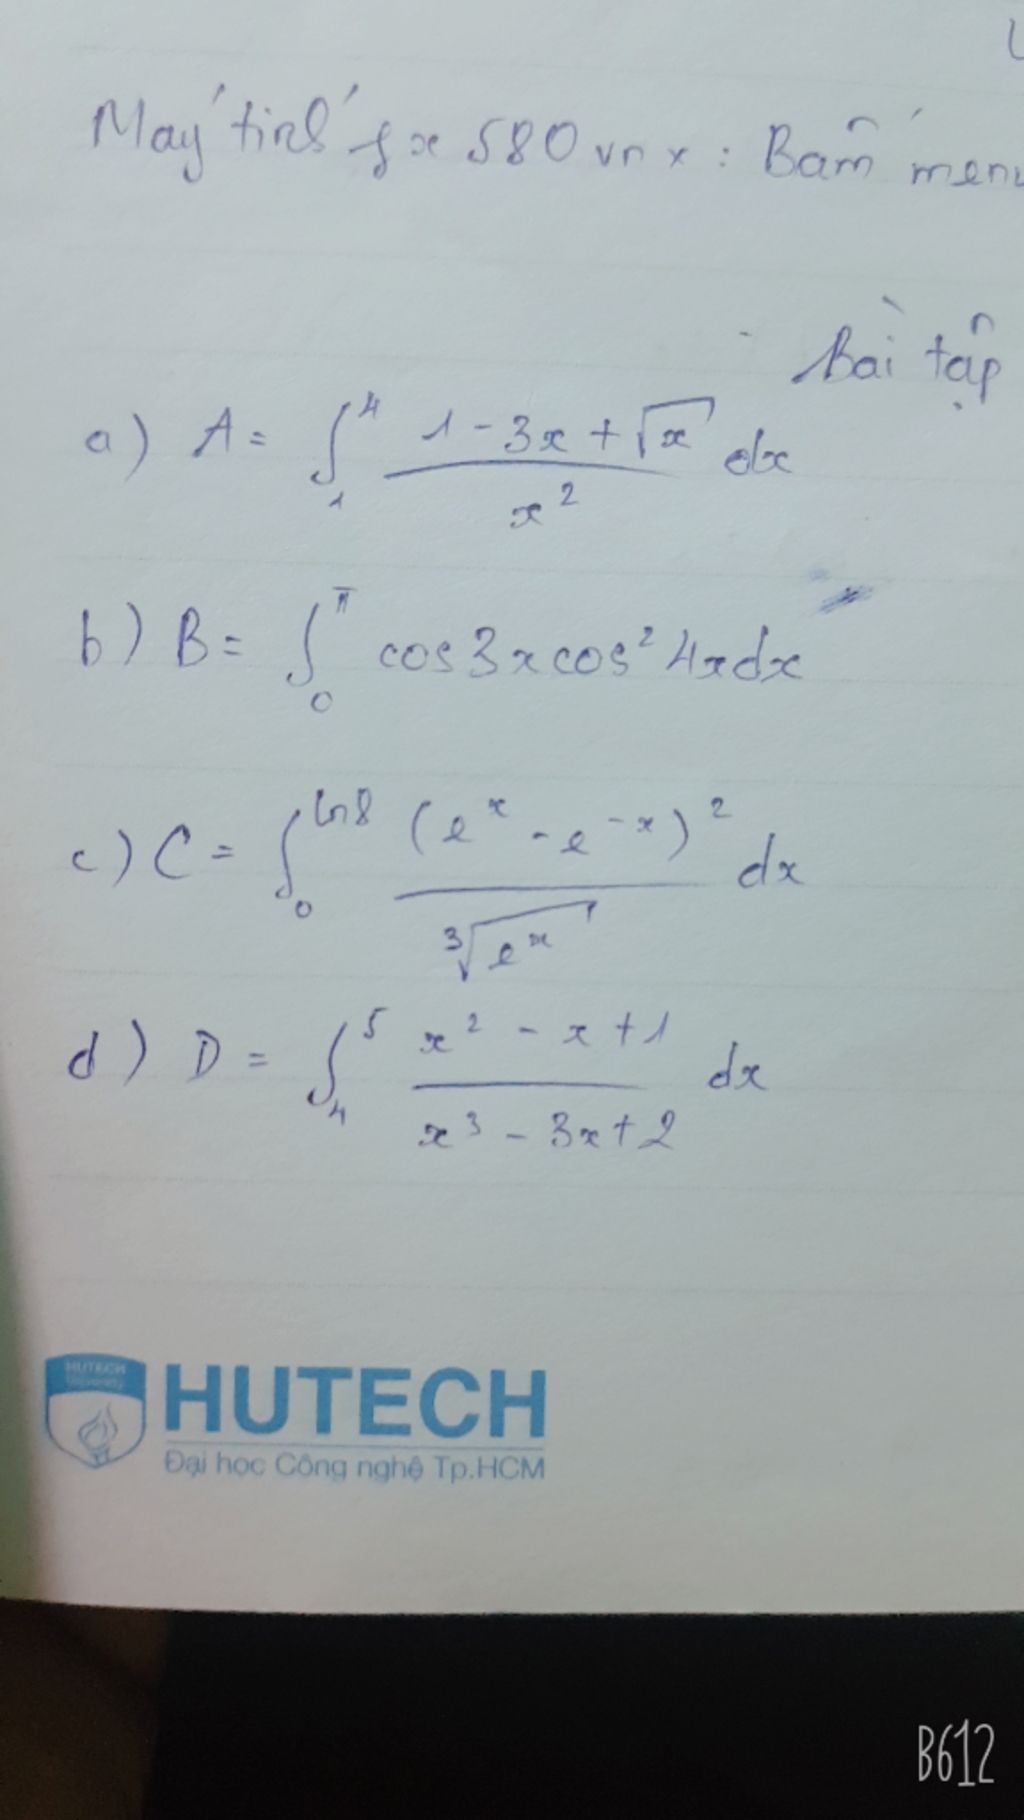 Máy tính fx 580 vn x : Bấm menu
Bài tập
a) A = ∫₁⁴ (1 - 3x + √x) / x² dx
b) B = ∫₀^π cos3xcos²4xdx
c) C = ∫₀^ln8 (eˣ - e⁻ˣ)² / ∛eˣ dx
d) D = ∫₄⁵ (x² - x + 1) / (x³ - 3x + 2) dx
HUTECH
University
HUTECH
Đại học Công nghệ Tp.HCM
B612